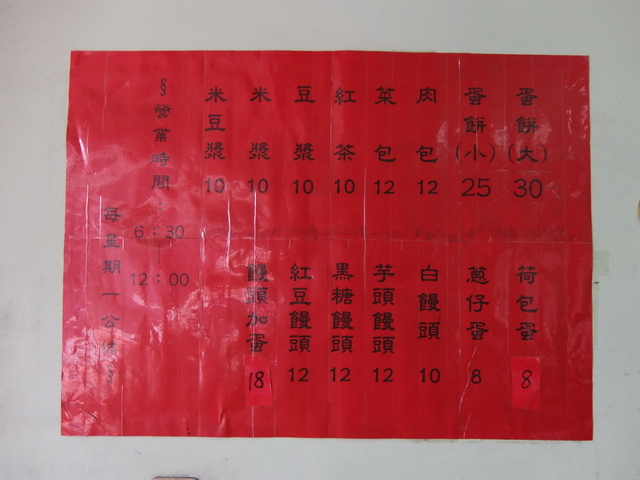 蛋餅(大) 30
蛋餅(小) 25
肉包 12
菜包 12
紅茶 10
豆漿 10
米漿 10
米豆漿 10
荷包蛋 8
蔥仔蛋 8
白饅頭 10
芋頭饅頭 12
黑糖饅頭 12
紅豆饅頭 12
饅頭加蛋 18
§營業時間：6：30｜12：00
每星期一公休§